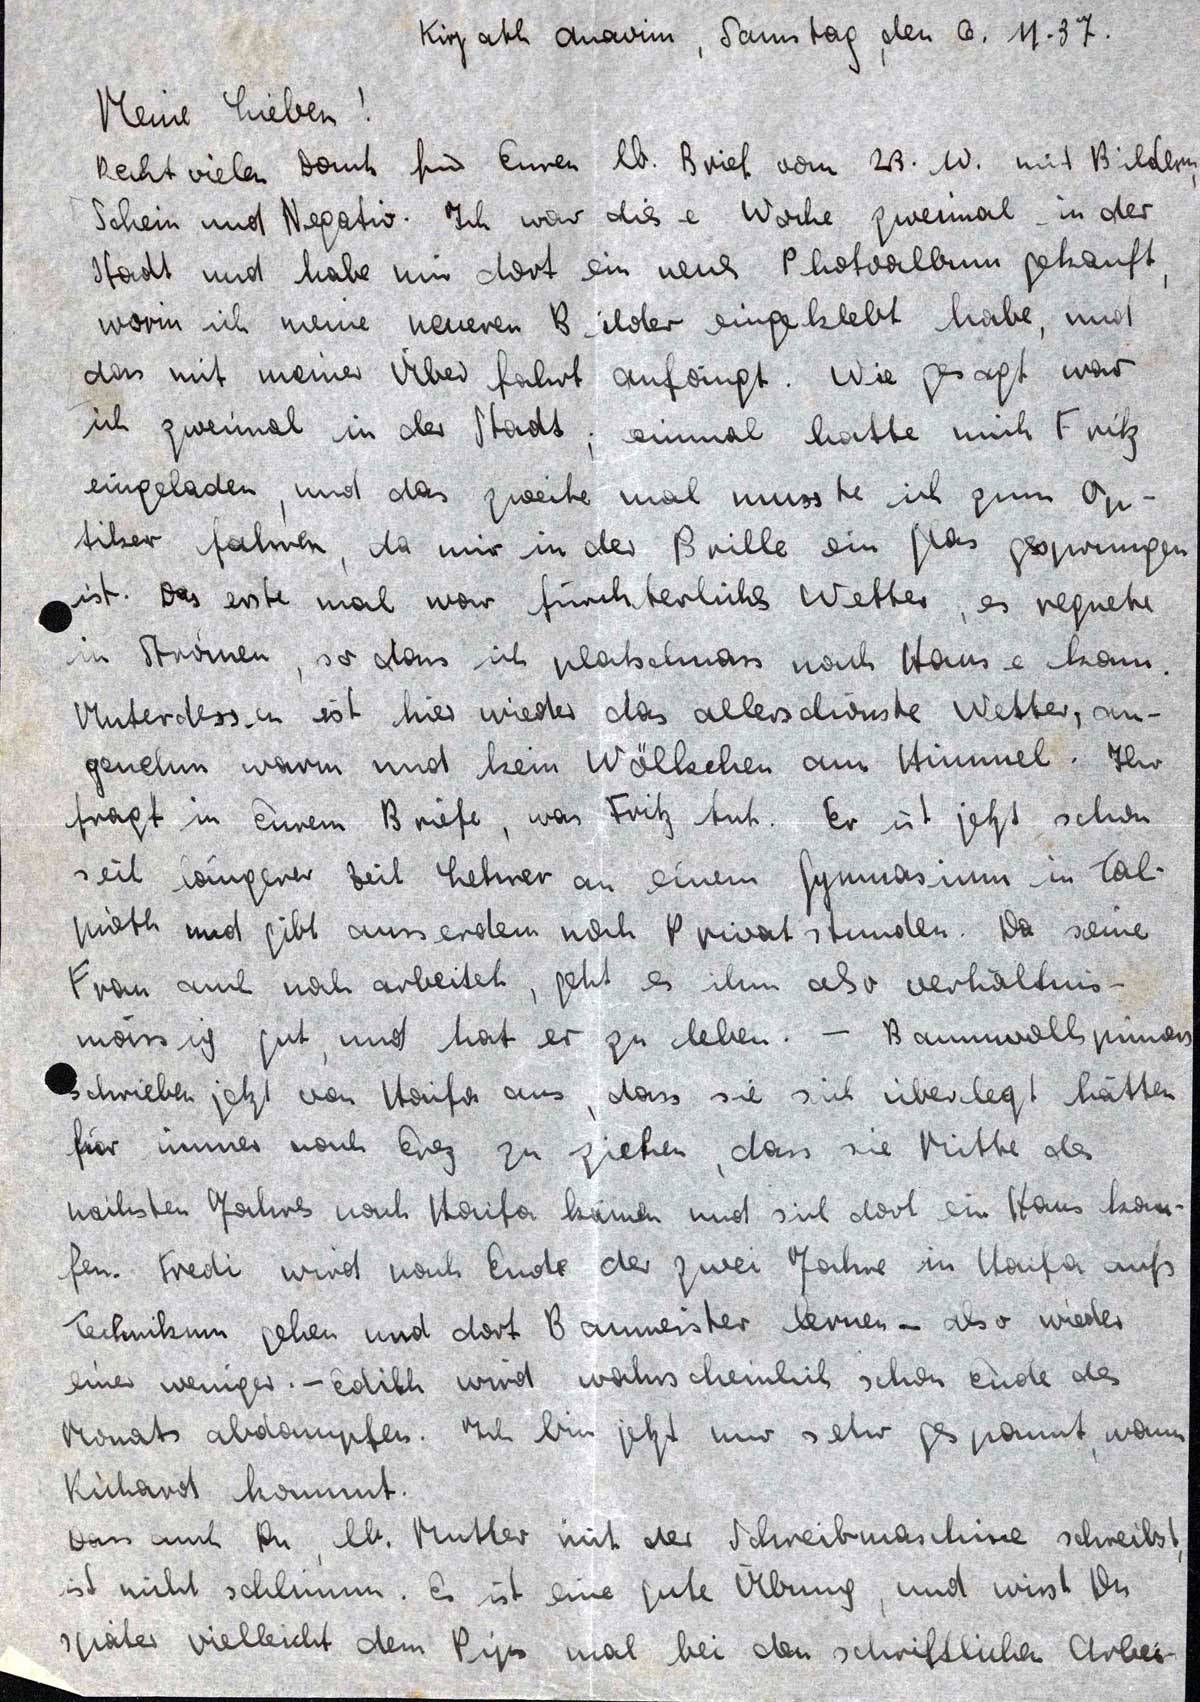 Kirjath Anavim, Samstag, den 6. 11. 37.
Meine Lieben!
Recht vielen Dank für Euren lb. Brief vom 23. 10. mit Bildern,
Schein und Negativ. Ich war diese Woche zweimal in der
Stadt und habe mir dort ein neues Photoalbum gekauft,
worin ich meine neueren Bilder eingeklebt habe, und
das mit meiner Überfahrt anfängt. Wie gesagt war
ich zweimal in der Stadt; einmal hatte mich Fritz
eingeladen, und das zweite mal musste ich zum Op-
tiker fahren, da mir in der Brille ein Glas gesprungen
ist. Das erste mal war fürchterliches Wetter, es regnete
in Strömen, so dass ich platschnass nach Hause kam.
Unterdessen ist hier wieder das allerschönste Wetter, an-
genehm warm und kein Wölkchen am Himmel. Ihr
fragt in Eurem Briefe, was Fritz tut. Er ist jetzt schon
seit längerer Zeit Lehrer an einem Gymnasium in Tal-
pioth und gibt ausserdem noch Privatstunden. Da seine
Frau auch noch arbeitet, geht es ihm also verhältnis-
mässig gut, und hat er zu leben. — Baumwollspinners
schrieben jetzt von Haifa aus, dass sie sich überlegt hätten
für immer nach Erez zu ziehen, dass sie Mitte des
nächsten Jahres nach Haifa kämen und sich dort ein Haus kau-
fen. Fredi wird nach Ende der zwei Jahre in Haifa aufs
Technikum gehen und dort Baumeister lernen – also wieder
einer weniger. — Edith wird wahrscheinlich schon Ende des
Monats abdampfen. Ich bin jetzt nur sehr gespannt, wann
Richard kommt.
Dass auch Du, lb. Mutter mit der Schreibmaschine schreibst,
ist nicht schlimm. Es ist eine gute Übung, und wirst Du
später vielleicht dem Pips mal bei den schriftlichen Arbei-